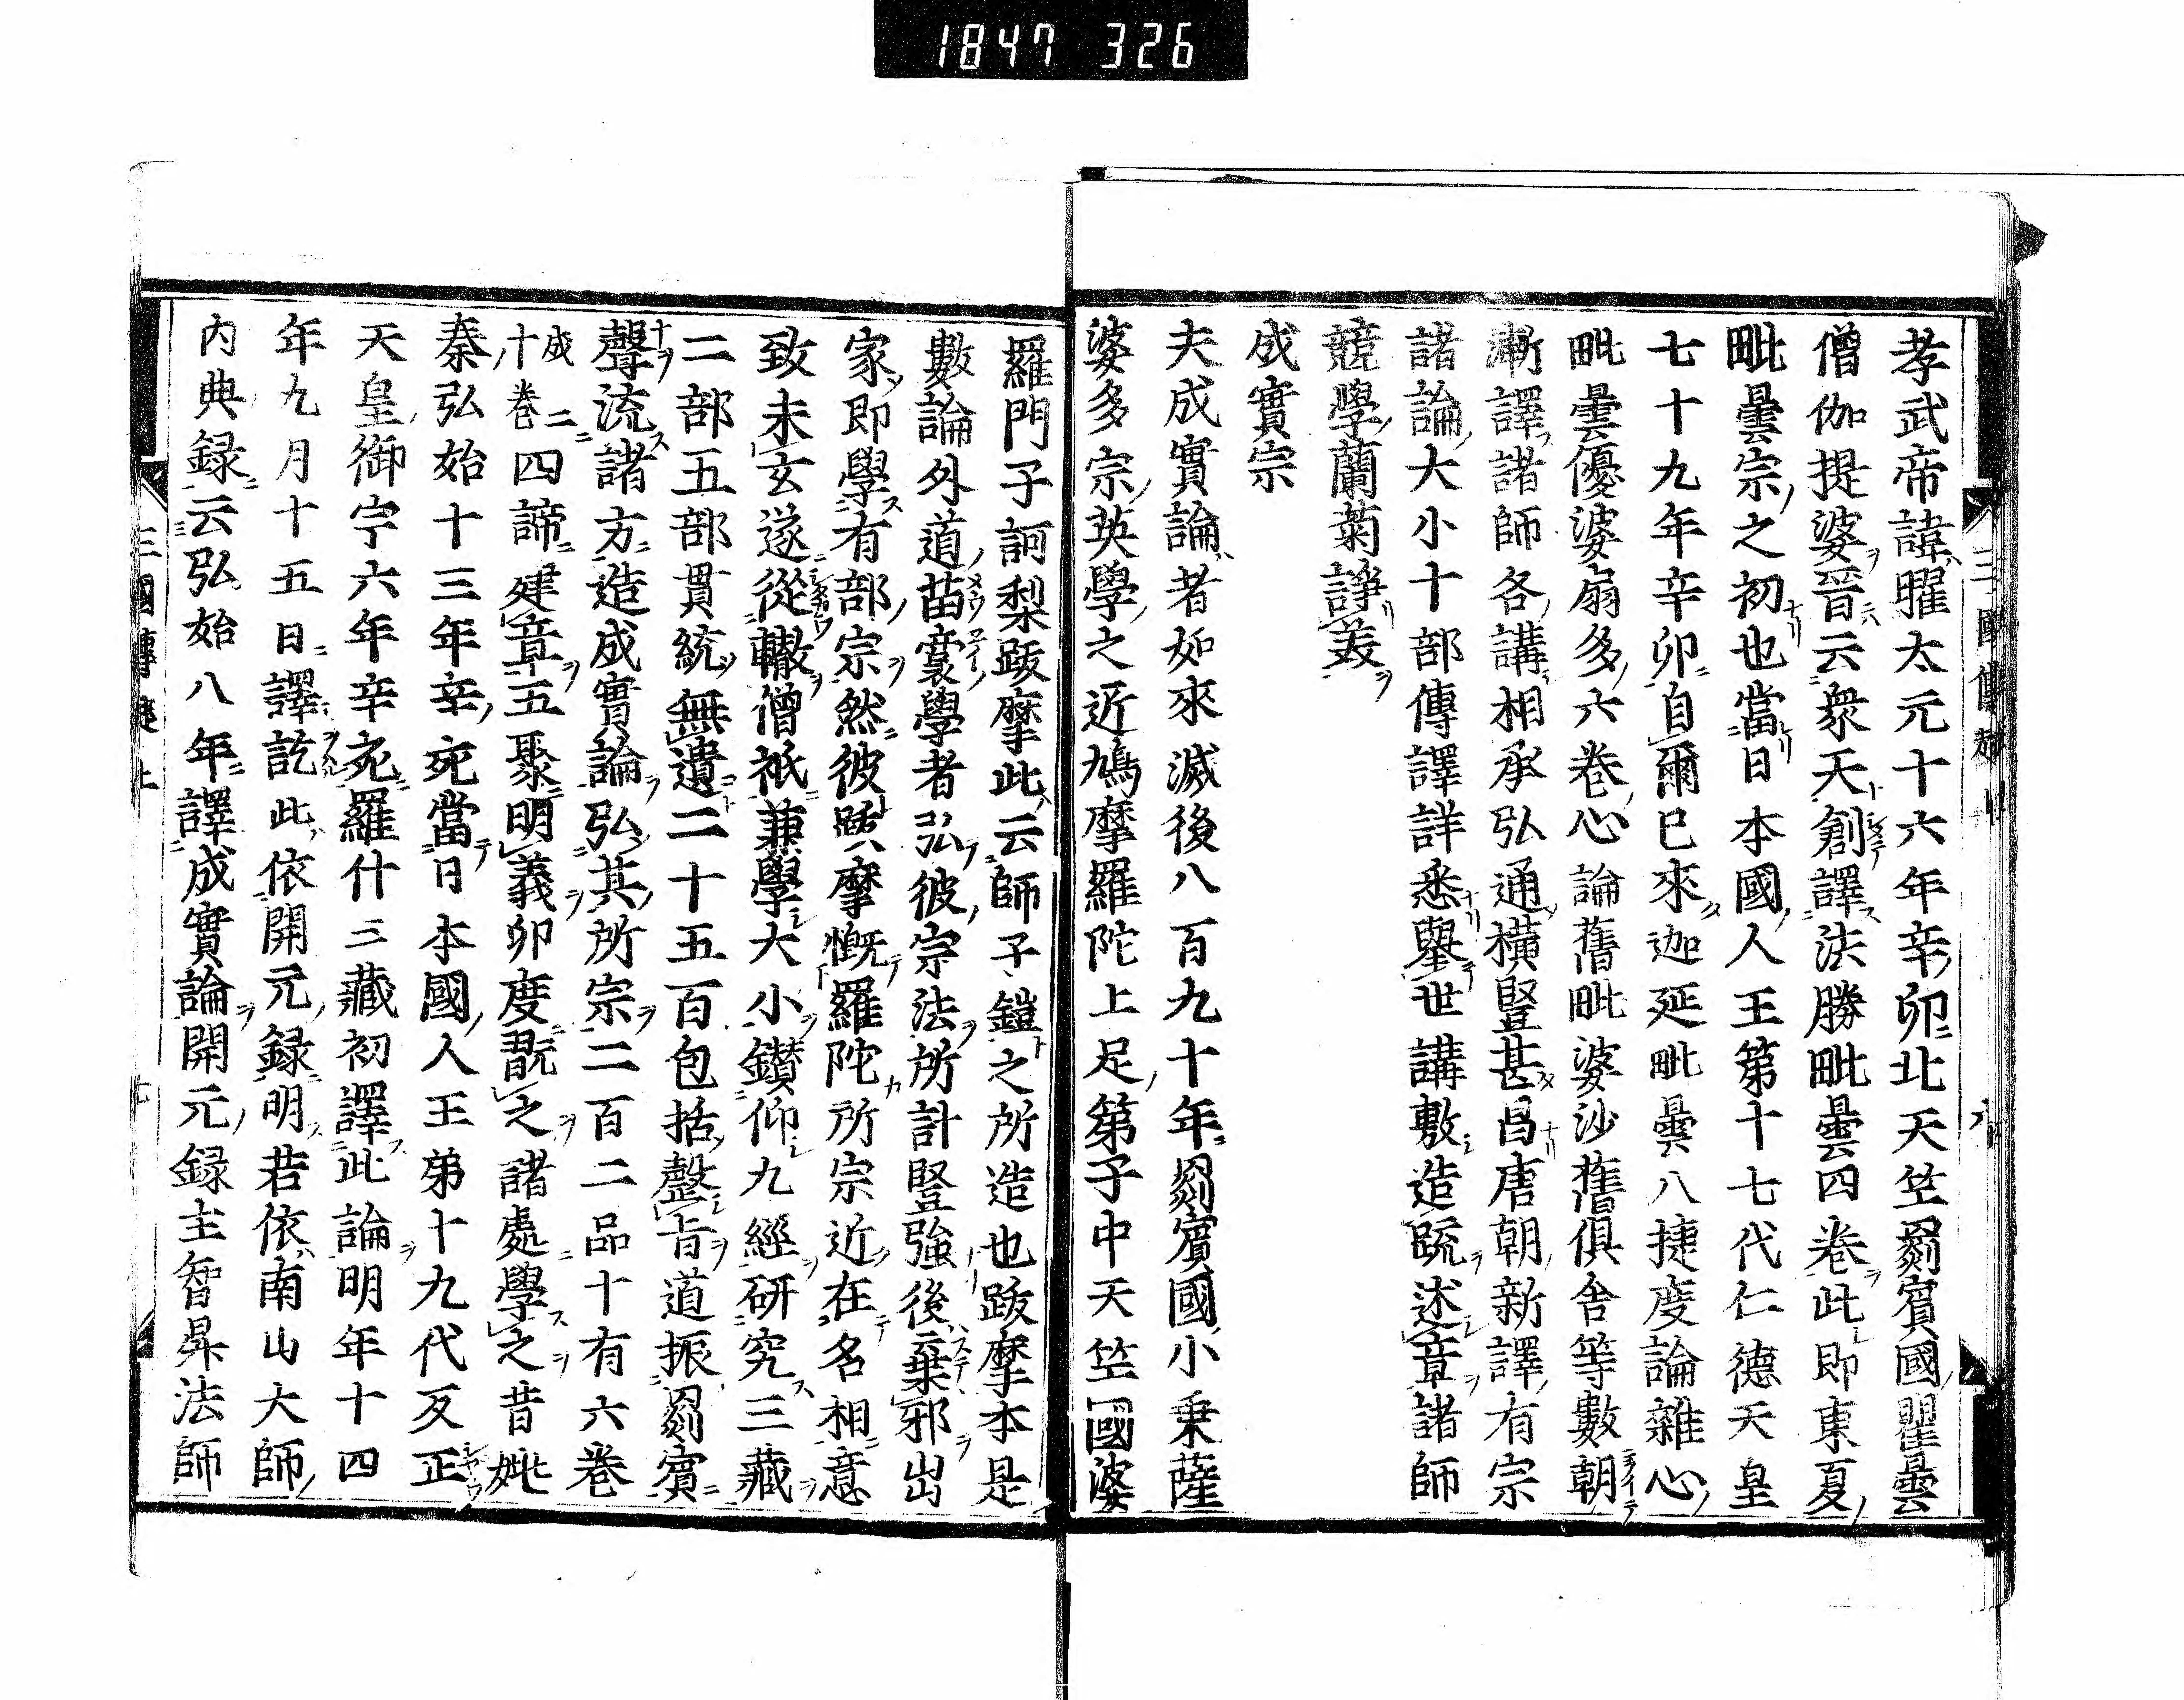 1847 326
孝武帝諱曜太元十六年辛卯北天竺罽賓國瞿曇
僧伽提婆晉云衆天創譯法勝毗曇四卷此即東夏
毗曇宗之初也當日本國人王第十七代仁德天皇
七十九年辛卯自爾已來迦延毗曇八捷度論雜心
毗曇優婆扇多六卷心論舊毗婆沙舊俱舍等數朝
漸譯諸師各講相承弘通橫豎甚昌唐朝新譯有宗
諸論大小十部傳譯詳悉擧世講敷造疏述章諸師
競學蘭菊諍美
成實宗
夫成實論者如來滅後八百九十年罽賓國小乘薩
婆多宗英學之近鳩摩羅陀上足第子中天竺國婆
羅門子訶梨跋摩此云師子鎧之所造也跋摩本是
數論外道苗裔學者弘彼宗法所計堅強後棄邪出
家即學有部宗然彼跋摩慨羅陀所宗近在名相意
致未玄遂從轍僧祇兼學大小鑚仰九經研究三藏
二部五部貫統無遺二十五百包括罄旨道振罽賓
聲流諸方造成實論弘其所宗二百二品十有六卷
或二十卷四諦建章五聚明義卯度翫之諸處學之昔姚
秦弘始十三年辛亥當日本國人王第十九代反正
天皇御宇六年辛亥羅什三藏初譯此論明年十四
年九月十五日譯訖此依開元録明若依南山大師
内典録云弘始八年譯成實論開元録主智昇法師